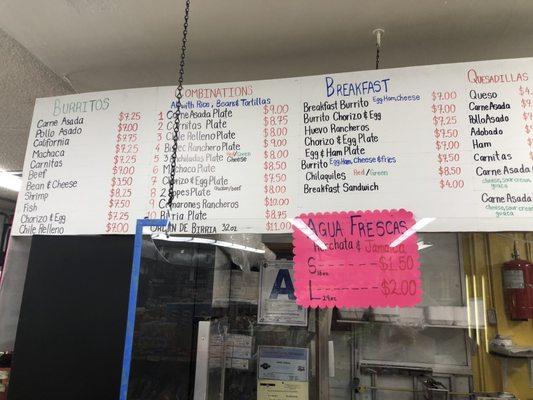 BURRITOS
Carne Asada $7.25
Pollo Asado $7.00
California $7.75
Machaca $7.25
Carnitas $7.25
Beef $7.00
Bean & Cheese $3.50
Fish $7.50
Chorizo & Egg $7.25
Chile Relleno $7.00
COMBINATIONS
All with Rice, Beans & Tortillas
1 Carne Asada Plate $9.00
2 Carnitas Plate $8.75
3 Chile Relleno Plate $8.00
4 Ranchero Plate $9.00
5 Enchiladas Plate Red/Green Cheese $8.00
6 Machaca Plate $8.50
7 Chorizo & Egg Plate $7.50
8 Sopes Plate Chicken/Beef $8.00
9 Camarones Rancheros $10.00
10 Birria Plate $8.75
DE BIRRIA 32oz $11.00
BREAKFAST
Breakfast Burrito Egg, Ham, Cheese $7.00
Burrito Chorizo & Egg $7.00
Huevo Rancheros $7.25
Chorizo & Egg Plate $7.50
Egg & Ham Plate $7.00
Burrito Egg, Ham, Cheese & Fries $7.50
Chilaquiles Red/Green $8.50
Breakfast Sandwich $4.00
QUESADILLAS
Queso
Carne Asada
Pollo Asado
Adobado
Ham
Carnitas
Carne Asada
cheese, sour cream
guaca
Carne Asada
cheese, sour cream
guaca
AGUA FRESCAS
Horchata & Jamaica
S 16oz $1.50
L 24oz $2.00
A